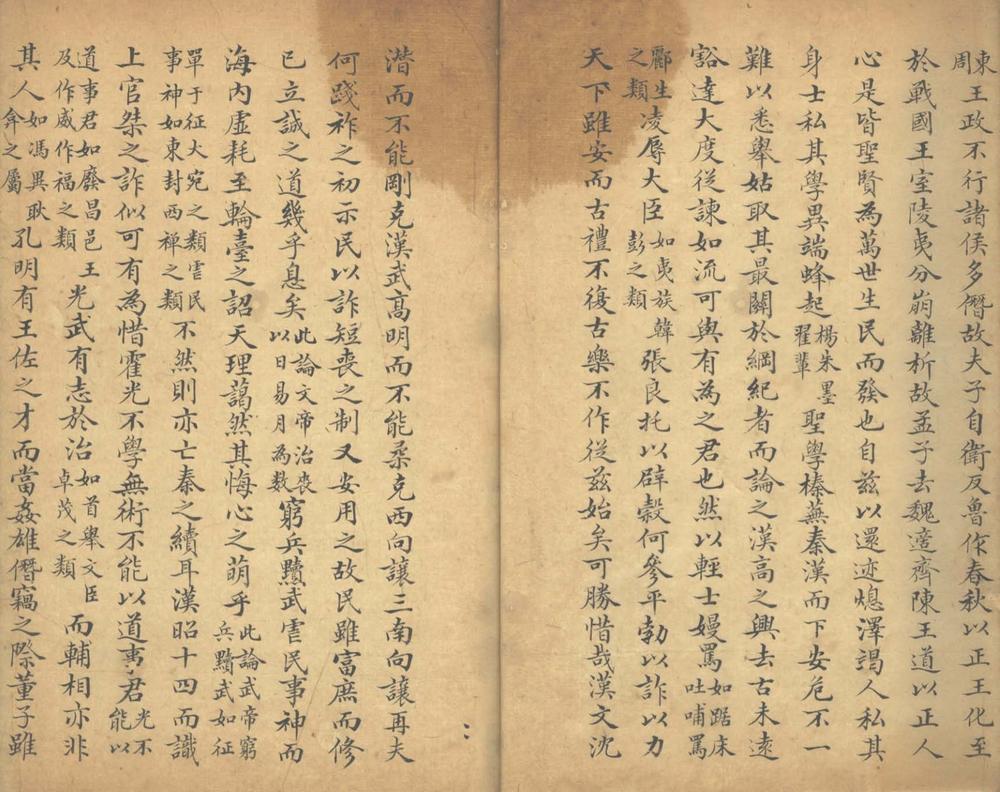 東周王政不行諸侯多僭故夫子自衛反魯作春秋以正王化至
於戰國王室陵夷分崩離析故孟子去魏適齊陳王道以正人
心是皆聖賢為萬世生民而發也自茲以還迹熄澤竭人私其
身士私其學異端蜂起楊朱墨翟輩聖學榛蕪秦漢而下安危不一
難以悉舉姑取其最關於綱紀者而論之漢高之興去古未遠
豁達大度從諫如流可與有為之君也然以輕士嫚罵如踞床吐哺罵
酈生之類凌辱大臣如夷族韓彭之類張良托以辟穀何參平勃以詐以力
天下雖安而古禮不復古樂不作從茲始矣可勝惜哉漢文沈
潛而不能剛克漢武高明而不能柔克西向讓三南向讓再夫
何踐祚之初示民以詐短喪之制又安用之故民雖富庶而修
已立誠之道幾乎息矣此論文帝治喪以日易月為數窮兵黷武害民事神而
海內虛耗至輪臺之詔天理藹然其悔心之萌乎此論武帝窮兵黷武如征
單于征大宛之類害民事神如東封西禅之類不然則亦亡秦之續耳漢昭十四而識
上官桀之詐似可有為惜霍光不學無術不能以道事君光不能以
道事君如廢昌邑王及作威作福之類光武有志於治如首舉文臣卓茂之類而輔相亦非
其人如馮異耿弇之屬孔明有王佐之才而當姦雄僭竊之際董子雖